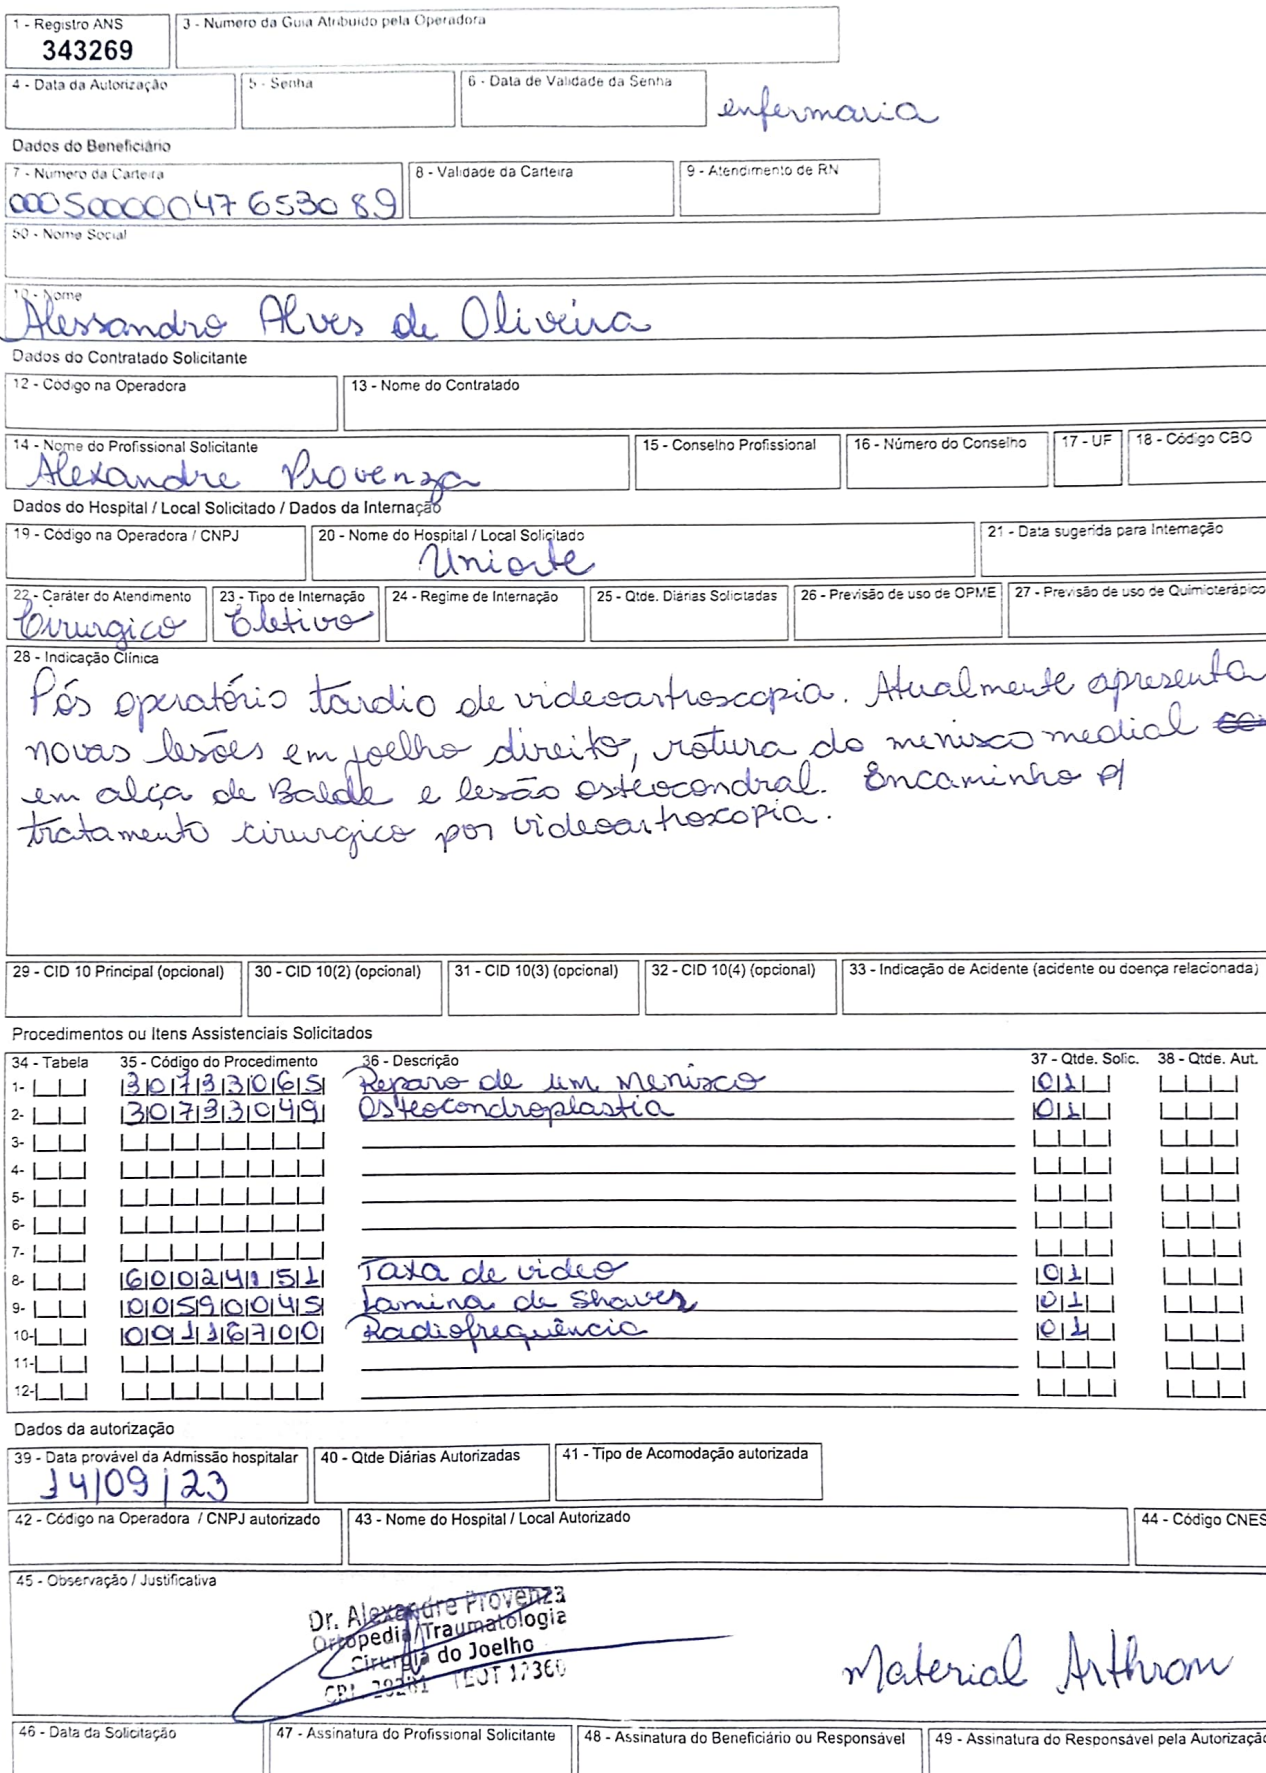 1 - Registro ANS
343269
3 - Numero da Guia Atribuido pela Operadora
4 - Data da Autorização
5 - Senha
6 - Data de Validade da Senha
enfermaria
Dados do Beneficiário
7 - Numero da Carteira
8 - Validade da Carteira
9 - Atendimento de RN
00050000047653089
50 - Nome Social
10 - Nome
Alessandro Alves de Oliveira
Dados do Contratado Solicitante
12 - Código na Operadora
13 - Nome do Contratado
14 - Nome do Profissional Solicitante
15 - Conselho Profissional
16 - Número do Conselho
17 - UF
18 - Código CBO
Alexandre Provenza
Dados do Hospital / Local Solicitado / Dados da Internação
19 - Código na Operadora / CNPJ
20 - Nome do Hospital / Local Solicitado
21 - Data sugerida para Internação
Uniorte
22 - Caráter do Atendimento
23 - Tipo de Internação
24 - Regime de Internação
25 - Qtde. Diárias Solicitadas
26 - Previsão de uso de OPME
27 - Previsão de uso de Quimioterápico
Cirurgico
Eletivo
28 - Indicação Clínica
Pós operatório tardio de videoartroscopia. Atualmente apresenta
novas lesões em joelho direito, rotura do menisco medial
em alça de Balde e lesão osteocondral. Encaminho p/
tratamento cirurgico por videoartroscopia.
29 - CID 10 Principal (opcional)
30 - CID 10(2) (opcional)
31 - CID 10(3) (opcional)
32 - CID 10(4) (opcional)
33 - Indicação de Acidente (acidente ou doença relacionada)
Procedimentos ou Itens Assistenciais Solicitados
34 - Tabela 35 - Código do Procedimento 36 - Descrição 37 - Qtde. Solic. 38 - Qtde. Aut.
1- 30733065 Reparo de um menisco 01
2- 30733049 Osteocondroplastia 01
3-
4-
5-
6-
7-
8- 60024151 Taxa de video 01
9- 00590045 Lamina de Shaver 01
10- 00116700 Radiofrequência 01
11-
12-
Dados da autorização
39 - Data provável da Admissão hospitalar
40 - Qtde Diárias Autorizadas
41 - Tipo de Acomodação autorizada
14/09/23
42 - Código na Operadora / CNPJ autorizado
43 - Nome do Hospital / Local Autorizado
44 - Código CNES
45 - Observação / Justificativa
Dr. Alexandre Provenza
Ortopedia/Traumatologia
Cirurgia do Joelho
TEOT 17360
Material Arthrom
46 - Data da Solicitação
47 - Assinatura do Profissional Solicitante
48 - Assinatura do Beneficiário ou Responsável
49 - Assinatura do Responsável pela Autorização